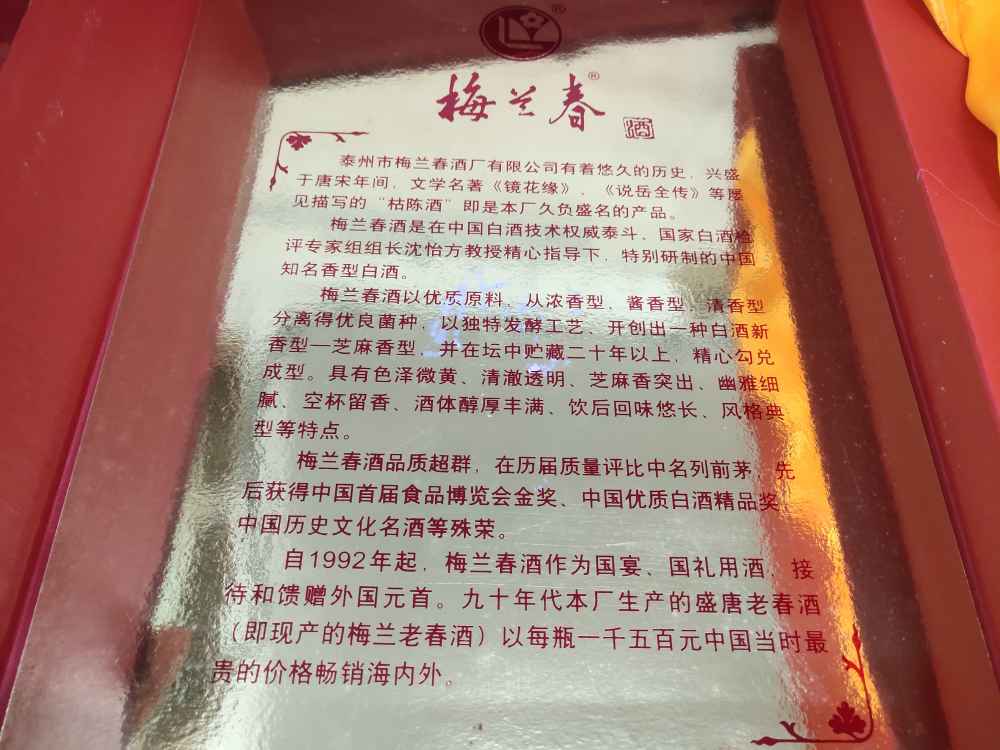 梅兰春®
酒
泰州市梅兰春酒厂有限公司有着悠久的历史，兴盛
于唐宋年间，文学名著《镜花缘》、《说岳全传》等屡
见描写的“枯陈酒”即是本厂久负盛名的产品。
梅兰春酒是在中国白酒技术权威泰斗、国家白酒检
评专家组组长沈怡方教授精心指导下，特别研制的中国
知名香型白酒。
梅兰春酒以优质原料，从浓香型，酱香型，清香型
分离得优良菌种，以独特发酵工艺、开创出一种白酒新
香型—芝麻香型，并在坛中贮藏二十年以上，精心勾兑
成型。具有色泽微黄、清澈透明、芝麻香突出、幽雅细
腻、空杯留香、酒体醇厚丰满、饮后回味悠长、风格典
型等特点。
梅兰春酒品质超群，在历届质量评比中名列前茅，先
后获得中国首届食品博览会金奖、中国优质白酒精品奖、
中国历史文化名酒等殊荣。
自1992年起，梅兰春酒作为国宴、国礼用酒，接
待和馈赠外国元首。九十年代本厂生产的盛唐老春酒
（即现产的梅兰老春酒）以每瓶一千五百元中国当时最
贵的价格畅销海内外。